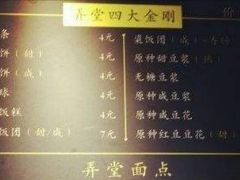 弄堂四大金刚
价
条 4元
饼(甜) 4元
饼(咸) 4元
球 4元
饭糕 4元
饭团(甜/咸) 7元
粢饭团(咸)
原种甜豆浆
无糖豆浆
原种咸豆浆
原种咸豆花
原种红豆豆花(甜)
弄堂面点